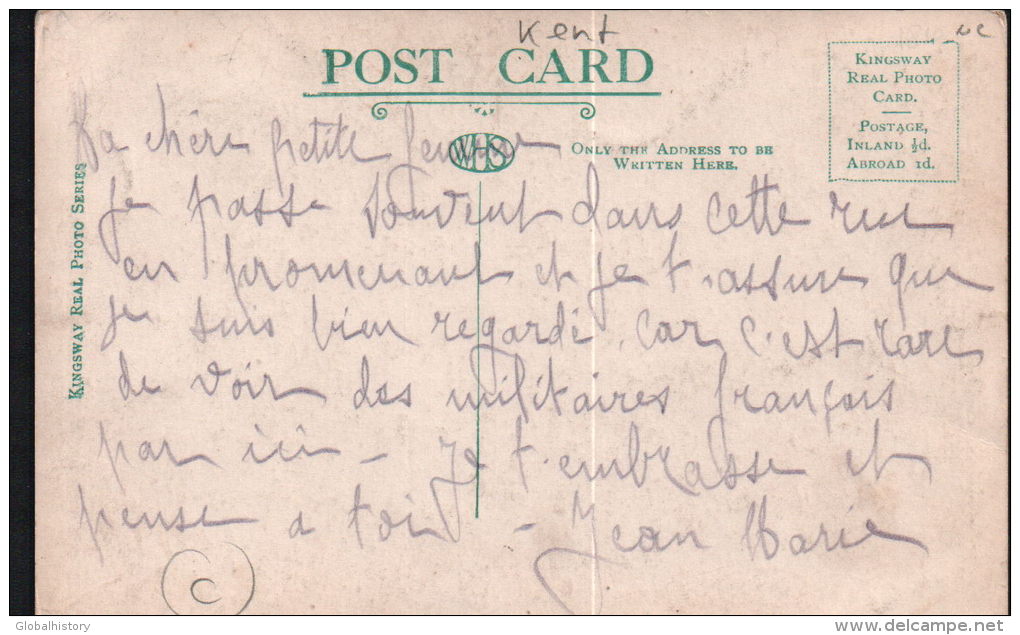 Kent
POST CARD
KINGSWAY
REAL PHOTO
CARD.
POSTAGE,
INLAND ½d.
ABROAD 1d.
WHS
ONLY THE ADDRESS TO BE
WRITTEN HERE.
KINGSWAY REAL PHOTO SERIES
Ma chère petite femme
Je passe souvent dans cette rue
en promenant et je t'assure que
je suis bien regardé, car c'est rare
de voir des militaires français
par ici - Je t'embrasse et
pense a toi - Jean Marie
C
Globalhistory